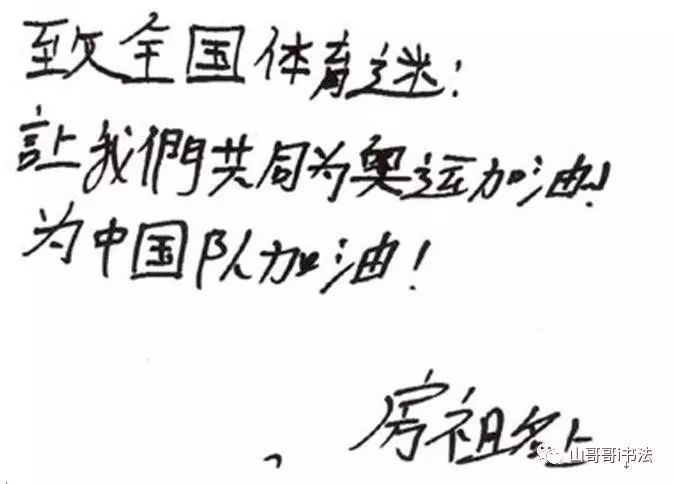 致全国体育迷：
訁上我們共同为奥运加油！
为中国队加油！
房祖名上
山哥哥i书法